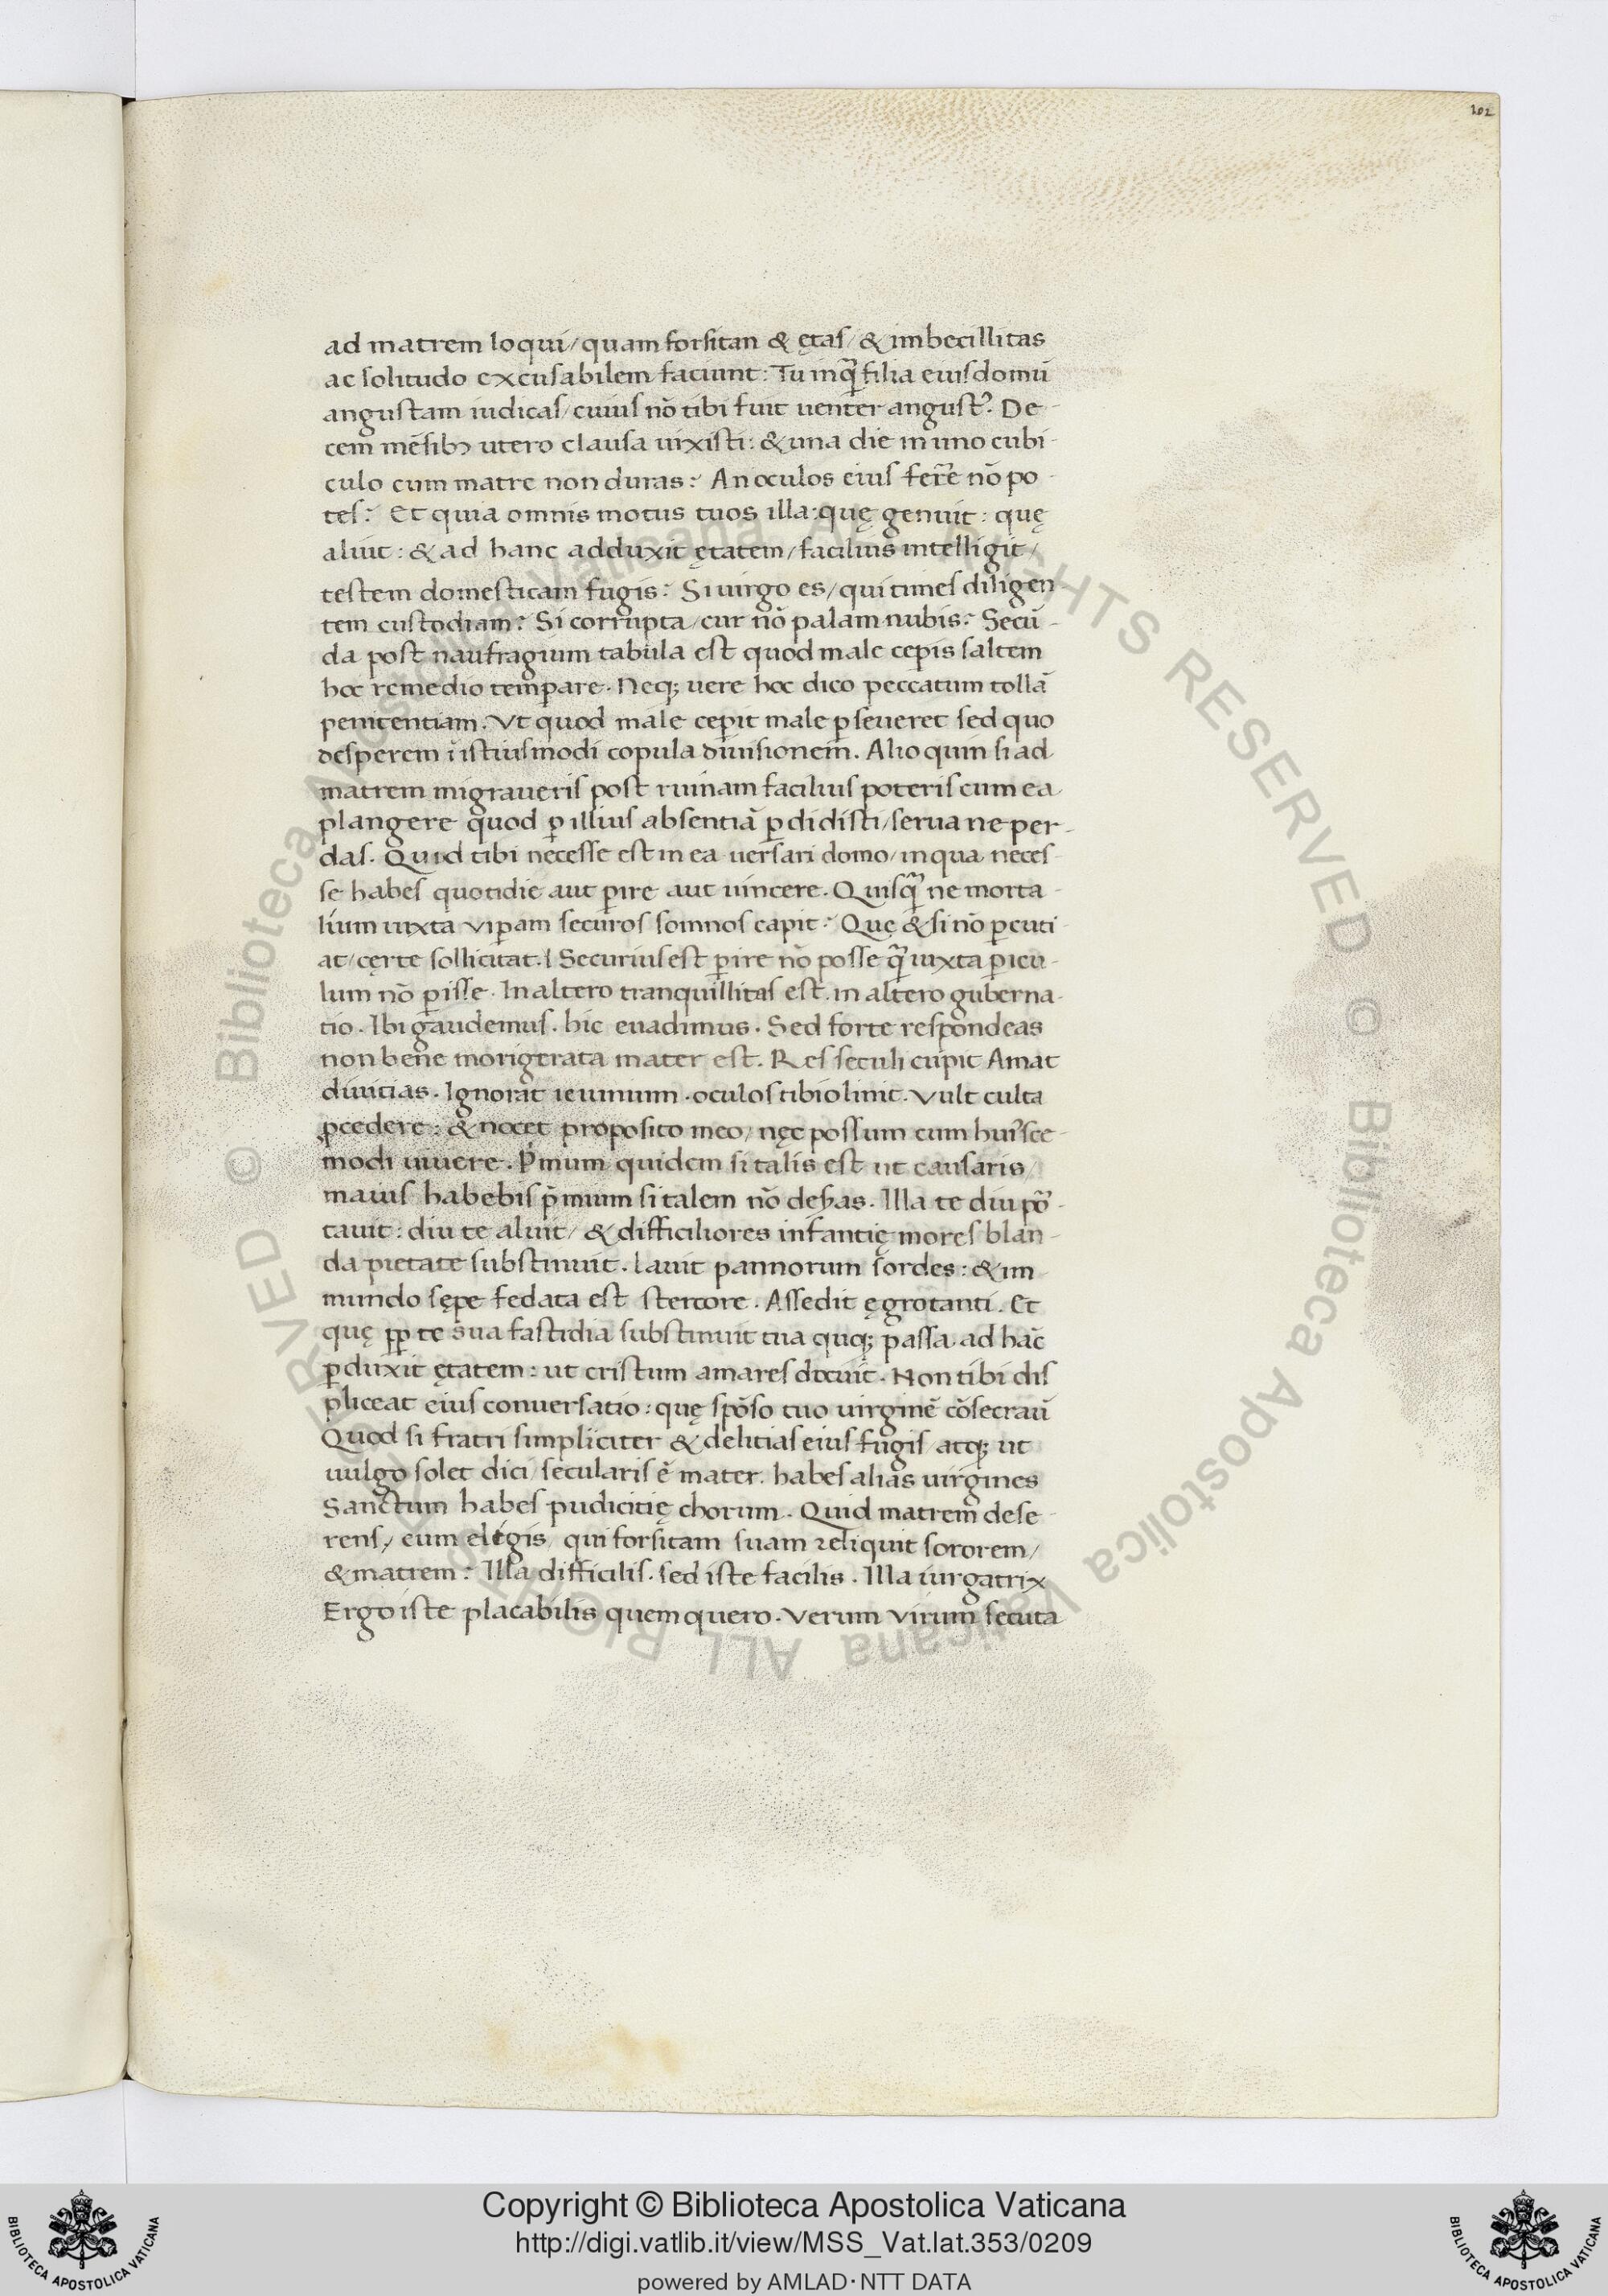 102
ad matrem loqui/ quam forsitan & ętas/ & imbecillitas
ac solitudo excusabilem faciunt: Tu inq̃ filia eius domū
angustam iudicas/ cuius nō tibi fuit uenter angust᾿. De-
cem mēsibꝫ utero clausa uixisti: & una die in uno cubi-
culo cum matre non duras? An oculos eius fer̄e nō po-
tes? Et quia omnis motus tuos illa: quę genuit: quę
aluit: & ad hanc adduxit ętatem/ facilius intelligit/
testem domesticam fugis? Si uirgo es/ qui times diligen
tem custodiam? Si corrupta/ cur nō palam nubis? Secū-
da post naufragium tabula est quod male cep̃is saltem
hoc remedio temp̃are. Neqꝫ uere hoc dico peccatum tollā
penitentiam. Vt quod male cepit male ꝑseueret sed quo
desperem ī istiusmodi copula diuisionem. Alioquin si ad
matrem migraueris post ruinam facilius poteris cum ea
plangere quod ꝑ illius absentiā ꝑdidisti/ serua ne per-
das. Quid tibi necesse est in ea uersari domo/ in qua neces-
se habes quotidie aut ꝑire aut uincere. Quisq̃ ne morta-
lium iuxta viꝑam securos somnos capit? Quę & si nō ꝑcuti-
at/ cęrte sollicitat. Securius est ꝑire nō posse q̃ iuxta ꝑicu-
lum nō ꝑisse. In altero tranquillitas est. in altero guberna-
tio. Ibi gaudemus. hic euadimus. Sed forte respondeas
non bene morigerata mater est. Res seculi cupit Amat
diuitias. Ignorat ieiunium. oculos tibio linit. Vult culta
ꝓcedere: & nocet proposito meo/ nęc possum cum hui᾿sce-
modi uiuere. Pͥmum quidem si talis est ut causaris/
maius habebis p̄mium si talem nō deseras. Illa te diu por̄-
tauit: diu te aluit/ & difficiliores infantię mores blan-
da pietate substinuit. lauit pannorum sordes: & im
mundo sępe fedata est stercore. Assedit ęgrotanti. Et
quę ꝓp te sua fastidia substinuit tua quoqꝫ passa. ad hāc
ꝑduxit ętatem: ut cristum amares docuit. Non tibi dis
pliceat eius conuersatio: quę spōso tuo uirginē cōsecrauī
Quod si fratri simpliciter & delitias eius fugis atqꝫ ut
uulgo solet dici/ secularis ē mater. habes alias uirgines
Sanctum habes pudicitię chorum. Quid matrem dese-
rens/ eum elegis/ qui forsitam suam reliquit sororem/
& matrem? Illa difficilis. sed iste facilis. Illa iurgatrix
Ergo iste placabilis quem quero. Verum virum secuta
© Biblioteca Apostolica Vaticana ALL RIGHTS RESERVED © Biblioteca Apostolica Vaticana ALL RIGHTS RESERVED
BIBLIOTECA APOSTOLICA VATICANA
Copyright © Biblioteca Apostolica Vaticana
http://digi.vatlib.it/view/MSS_Vat.lat.353/0209
powered by AMLAD·NTT DATA
BIBLIOTECA APOSTOLICA VATICANA